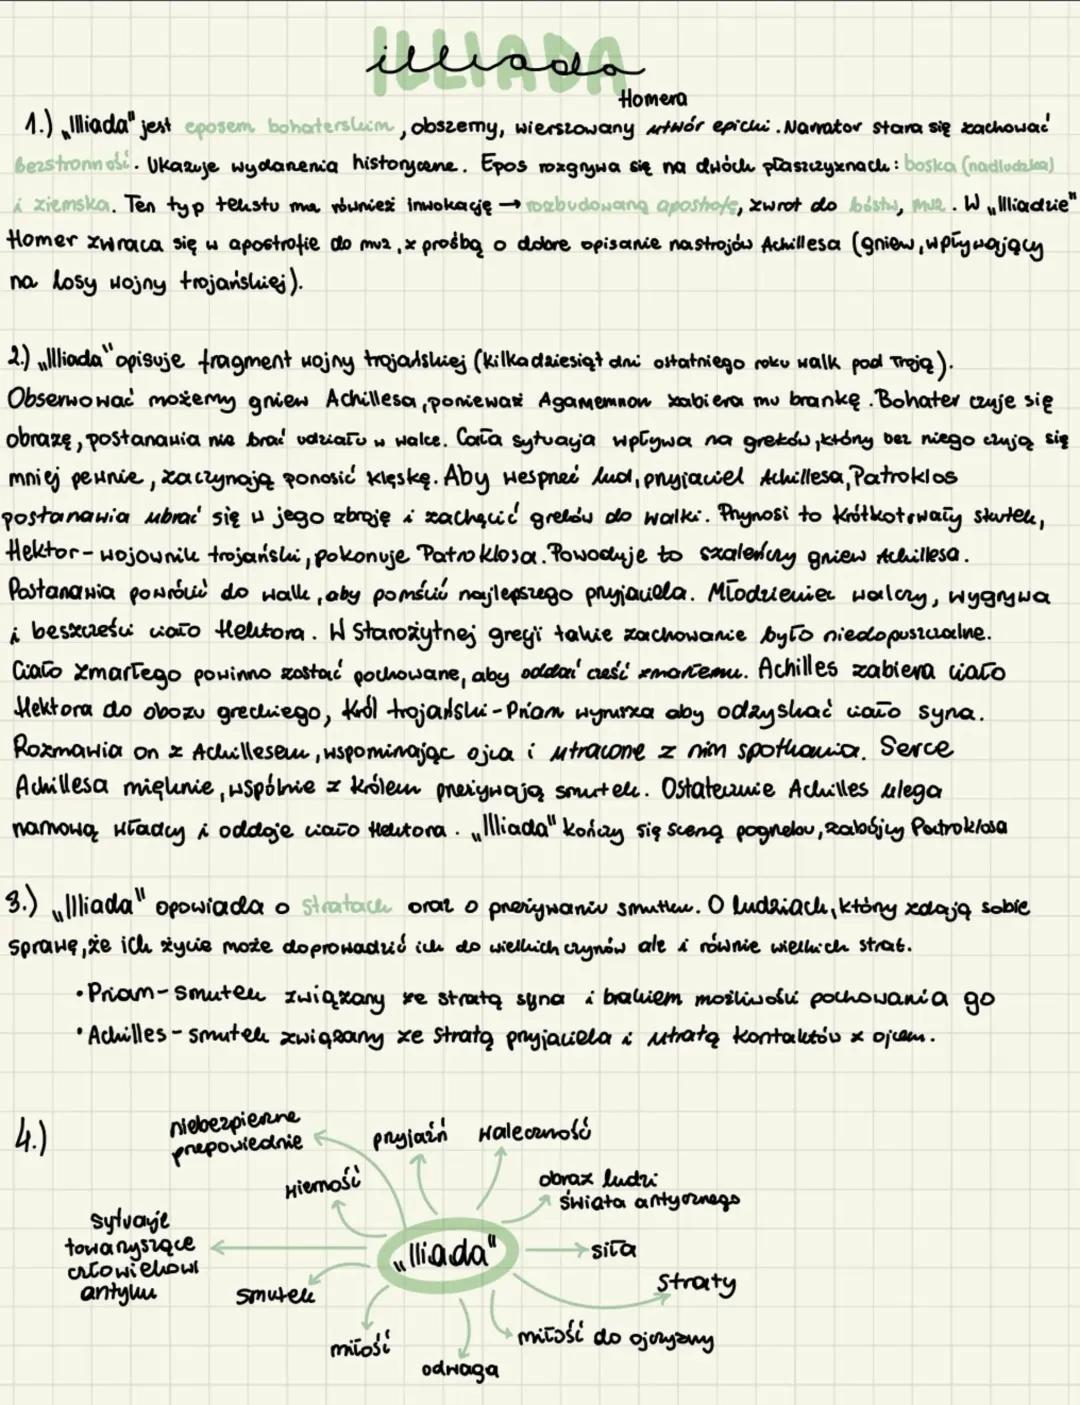 ILLIADA
illiada
Homera
1.) „Illiada" jest eposem bohaterskim, obszerny, wierszowany utwór epicki. Narrator stara się zachować
bezstronność. Ukazuje wydarzenia historyczne. Epos rozgrywa się na dwóch płaszczyznach: boska (nadludzka)
i ziemska. Ten typ tekstu ma również inwokację → rozbudowaną apostrofę, zwrot do bóstw, muz. W „Illiadzie"
Homer zwraca się w apostrofie do muz, z prośbą o dobre opisanie nastrojów Achillesa (gniew, wpływający
na losy wojny trojańskiej).
2.) „Illiada" opisuje fragment wojny trojańskiej (kilkadziesiąt dni ostatniego roku walk pod Troją).
Obserwować możemy gniew Achillesa, ponieważ Agamemnon zabiera mu brankę. Bohater czuje się
obrazę, postanawia nie brać udziału w walce. Cała sytuacja wpływa na greków, który bez niego czują się
mniej pewnie, zaczynają ponosić klęskę. Aby wesprzeć lud, przyjaciel Achillesa, Patroklos
postanawia ubrać się w jego zbroję i zachęcić greków do walki. Przynosi to krótkotrwały skutek,
Hektor - wojownik trojański, pokonuje Patroklosa. Powoduje to szaleńczy gniew Achillesa.
Postanawia powrócić do walk, aby pomścić najlepszego przyjaciela. Młodzieniec walczy, wygrywa
i beszcześci ciało Hektora. W Starożytnej grecji takie zachowanie było niedopuszczalne.
Ciało zmarłego powinno zostać pochowane, aby oddać cześć zmarłemu. Achilles zabiera ciało
Hektora do obozu greckiego, Król trojański - Priam wyrusza aby odzyskać ciało syna.
Rozmawia on z Achillesem, wspominając ojca i utracone z nim spotkania. Serce
Achillesa mięknie, wspólnie z królem przeżywają smutek. Ostatecznie Achilles ulega
namową władcy i oddaje ciało Hektora. „Illiada" kończy się sceną pogrzebu, zabójcy Patroklosa
3.) „Illiada" opowiada o stratach oraz o przeżywaniu smutku. O ludziach, który zdają sobie
sprawę, że ich życie może doprowadzić ich do wielkich czynów ale i równie wielkich strat.
• Priam - smutek związany ze stratą syna i brakiem możliwości pochowania go
• Achilles - smutek związany ze stratą przyjaciela i utratą kontaktów z ojcem.
4.)
niebezpieczne
przepowiednie
przyjaźń
waleczność
wierność
obraz ludzi
świata antycznego
sytuacje
towarzyszące
człowiekowi
antyku
„Iliada"
siła
smutek
straty
miłość
miłość do ojczyzny
odwaga